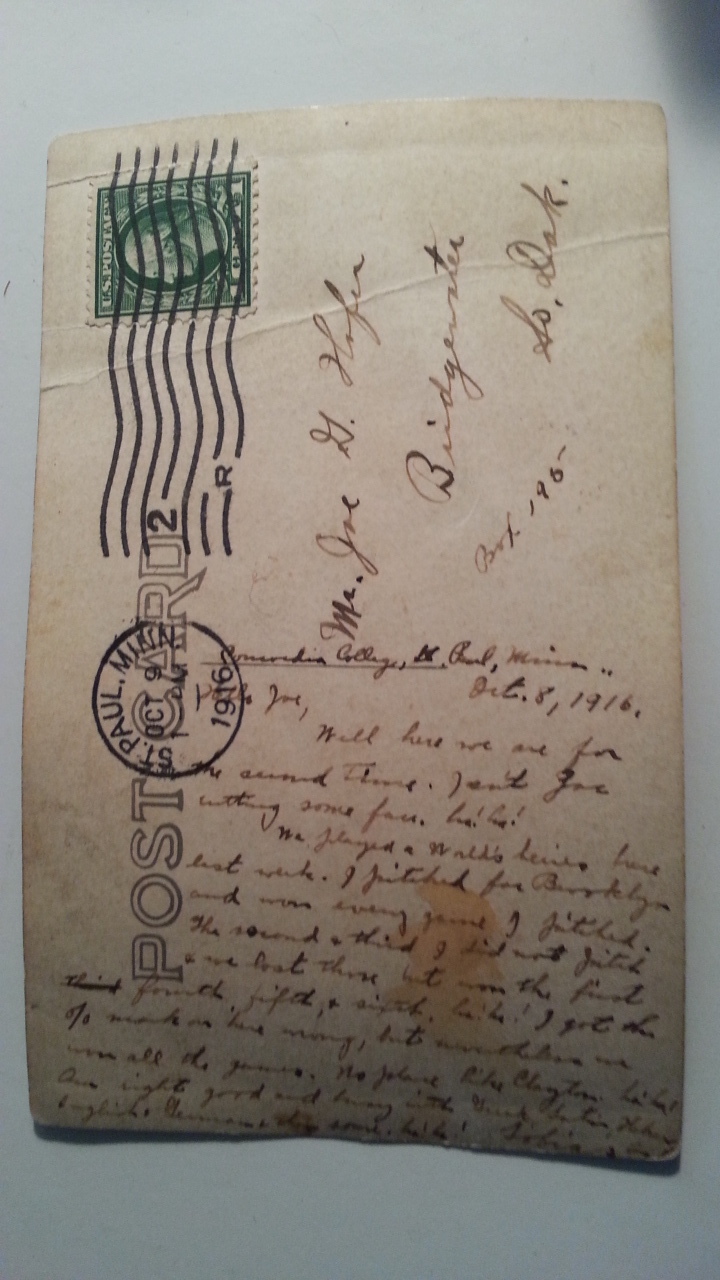 U.S. POSTAGE
POST CARD
ST. PAUL, MINN.
OCT 9
1916
2
R
Mr. Joe G. Hofer
Bridgewater
So. Dak.
Box 195-
Concordia College, St. Paul, Minn..
Oct. 8, 1916.
Hello Joe,
Well here we are for
the second time. Isn't Joe
cutting some face. ha! ha!
We played a World's Series here
last week. I pitched for Brooklyn
and won every game I pitched.
The second & third I did not pitch
& we lost those but won the first
third fourth, fifth, & sixth. ha! ha! I got the
% mark on here wrong, but nevertheless we
won all the games. No place like Clayton. ha! ha!
Am right good and busy with Greek, Latin,
English, German &